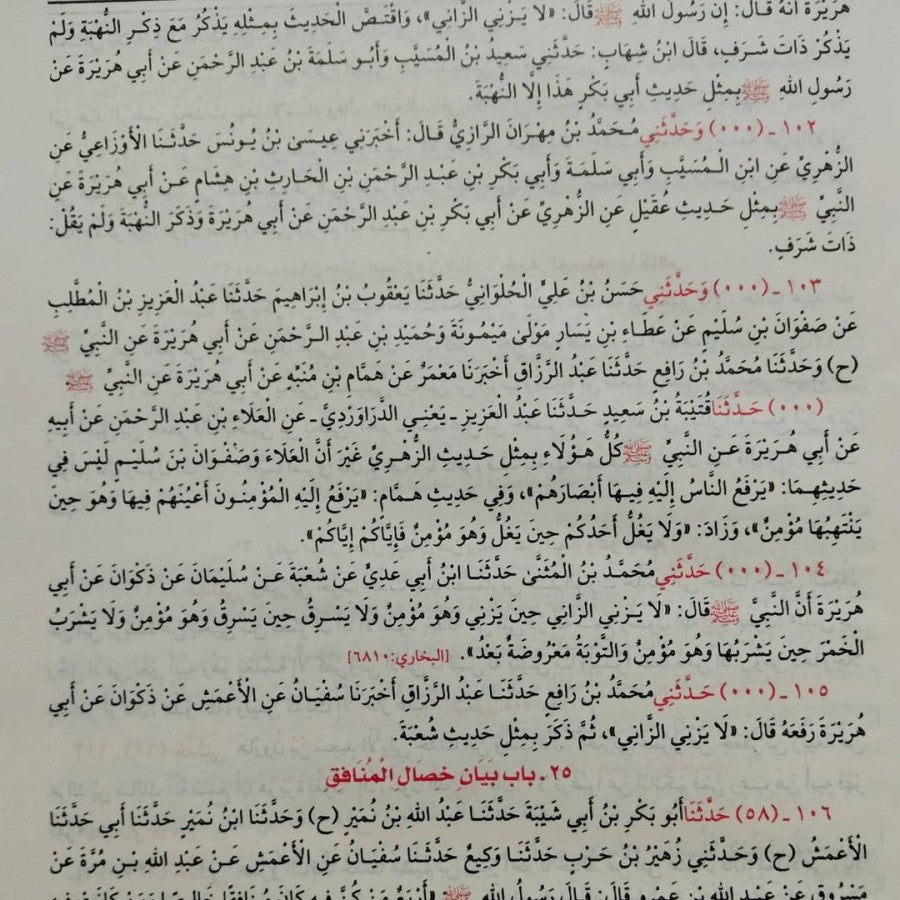 هُرَيْرَةَ أَنَّهُ قَالَ: إِنَّ رَسُولَ اللهِ ﷺ قَالَ: «لَا يَزْنِي الزَّانِي»، وَاقْتَصَّ الْحَدِيثَ بِمِثْلِهِ يَذْكُرُ مَعَ ذِكْرِ النُّهْبَةِ وَلَمْ
يَذْكُرْ ذَاتَ شَرَفٍ، قَالَ ابْنُ شِهَابٍ: حَدَّثَنِي سَعِيدُ بْنُ الْمُسَيَّبِ وَأَبُو سَلَمَةَ بْنُ عَبْدِ الرَّحْمَنِ عَنْ أَبِي هُرَيْرَةَ عَنْ
رَسُولِ اللهِ ﷺ بِمِثْلِ حَدِيثِ أَبِي بَكْرٍ هَذَا إِلَّا النُّهْبَةَ.
١٠٢ ـ (٠٠٠) وَحَدَّثَنِي مُحَمَّدُ بْنُ مِهْرَانَ الرَّازِيُّ قَالَ: أَخْبَرَنِي عِيسَىٰ بْنُ يُونُسَ حَدَّثَنَا الْأَوْزَاعِيُّ عَنِ
الزُّهْرِيِّ عَنِ ابْنِ الْمُسَيَّبِ وَأَبِي سَلَمَةَ وَأَبِي بَكْرِ بْنِ عَبْدِ الرَّحْمَنِ بْنِ الْحَارِثِ بْنِ هِشَامٍ عَنْ أَبِي هُرَيْرَةَ عَنِ
النَّبِيِّ ﷺ بِمِثْلِ حَدِيثِ عُقَيْلٍ عَنِ الزُّهْرِيِّ عَنْ أَبِي بَكْرِ بْنِ عَبْدِ الرَّحْمَنِ عَنْ أَبِي هُرَيْرَةَ وَذَكَرَ النُّهْبَةَ وَلَمْ يَقُلْ:
ذَاتَ شَرَفٍ.
١٠٣ ـ (٠٠٠) وَحَدَّثَنِي حَسَنُ بْنُ عَلِيٍّ الْحُلْوَانِيُّ حَدَّثَنَا يَعْقُوبُ بْنُ إِبْرَاهِيمَ حَدَّثَنَا عَبْدُ الْعَزِيزِ بْنُ الْمُطَّلِبِ
عَنْ صَفْوَانَ بْنِ سُلَيْمٍ عَنْ عَطَاءِ بْنِ يَسَارٍ مَوْلَىٰ مَيْمُونَةَ وَحُمَيْدِ بْنِ عَبْدِ الرَّحْمَنِ عَنْ أَبِي هُرَيْرَةَ عَنِ النَّبِيِّ ﷺ
(ح) وَحَدَّثَنَا مُحَمَّدُ بْنُ رَافِعٍ حَدَّثَنَا عَبْدُ الرَّزَّاقِ أَخْبَرَنَا مَعْمَرٌ عَنْ هَمَّامِ بْنِ مُنَبِّهٍ عَنْ أَبِي هُرَيْرَةَ عَنِ النَّبِيِّ ﷺ
(٠٠٠) حَدَّثَنَا قُتَيْبَةُ بْنُ سَعِيدٍ حَدَّثَنَا عَبْدُ الْعَزِيزِ ـ يَعْنِي الدَّرَاوَرْدِيَّ ـ عَنِ الْعَلَاءِ بْنِ عَبْدِ الرَّحْمَنِ عَنْ أَبِيهِ
عَنْ أَبِي هُرَيْرَةَ عَنِ النَّبِيِّ ﷺ كُلُّ هَؤُلَاءِ بِمِثْلِ حَدِيثِ الزُّهْرِيِّ غَيْرَ أَنَّ الْعَلَاءَ وَصَفْوَانَ بْنَ سُلَيْمٍ لَيْسَ فِي
حَدِيثِهِمَا: «يَرْفَعُ النَّاسُ إِلَيْهِ فِيهَا أَبْصَارَهُمْ»، وَفِي حَدِيثِ هَمَّامٍ: «يَرْفَعُ إِلَيْهِ الْمُؤْمِنُونَ أَعْيُنَهُمْ فِيهَا وَهُوَ حِينَ
يَنْتَهِبُهَا مُؤْمِنٌ»، وَزَادَ: «وَلَا يَغُلُّ أَحَدُكُمْ حِينَ يَغُلُّ وَهُوَ مُؤْمِنٌ فَإِيَّاكُمْ إِيَّاكُمْ».
١٠٤ ـ (٠٠٠) حَدَّثَنِي مُحَمَّدُ بْنُ الْمُثَنَّىٰ حَدَّثَنَا ابْنُ أَبِي عَدِيٍّ عَنْ شُعْبَةَ عَنْ سُلَيْمَانَ عَنْ ذَكْوَانَ عَنْ أَبِي
هُرَيْرَةَ أَنَّ النَّبِيَّ ﷺ قَالَ: «لَا يَزْنِي الزَّانِي حِينَ يَزْنِي وَهُوَ مُؤْمِنٌ وَلَا يَسْرِقُ حِينَ يَسْرِقُ وَهُوَ مُؤْمِنٌ وَلَا يَشْرَبُ
الْخَمْرَ حِينَ يَشْرَبُهَا وَهُوَ مُؤْمِنٌ وَالتَّوْبَةُ مَعْرُوضَةٌ بَعْدُ». [البخاري:٦٨١٠]
١٠٥ ـ (٠٠٠) حَدَّثَنِي مُحَمَّدُ بْنُ رَافِعٍ حَدَّثَنَا عَبْدُ الرَّزَّاقِ أَخْبَرَنَا سُفْيَانُ عَنِ الْأَعْمَشِ عَنْ ذَكْوَانَ عَنْ أَبِي
هُرَيْرَةَ رَفَعَهُ قَالَ: «لَا يَزْنِي الزَّانِي»، ثُمَّ ذَكَرَ بِمِثْلِ حَدِيثِ شُعْبَةَ.
٢٥ ـ باب بَيَانِ خِصَالِ الْمُنَافِقِ
١٠٦ ـ (٥٨) حَدَّثَنَا أَبُو بَكْرِ بْنُ أَبِي شَيْبَةَ حَدَّثَنَا عَبْدُ اللهِ بْنُ نُمَيْرٍ (ح) وَحَدَّثَنَا ابْنُ نُمَيْرٍ حَدَّثَنَا أَبِي حَدَّثَنَا
الْأَعْمَشُ (ح) وَحَدَّثَنِي زُهَيْرُ بْنُ حَرْبٍ حَدَّثَنَا وَكِيعٌ حَدَّثَنَا سُفْيَانُ عَنِ الْأَعْمَشِ عَنْ عَبْدِ اللهِ بْنِ مُرَّةَ عَنْ
مَسْرُوقٍ عَنْ عَبْدِ اللهِ بْنِ عَمْرٍو قَالَ: قَالَ رَسُولُ اللهِ ﷺ «أَرْبَعٌ مَنْ كُنَّ فِيهِ كَانَ مُنَافِقًا خَالِصًا وَمَنْ كَانَتْ فِيهِ